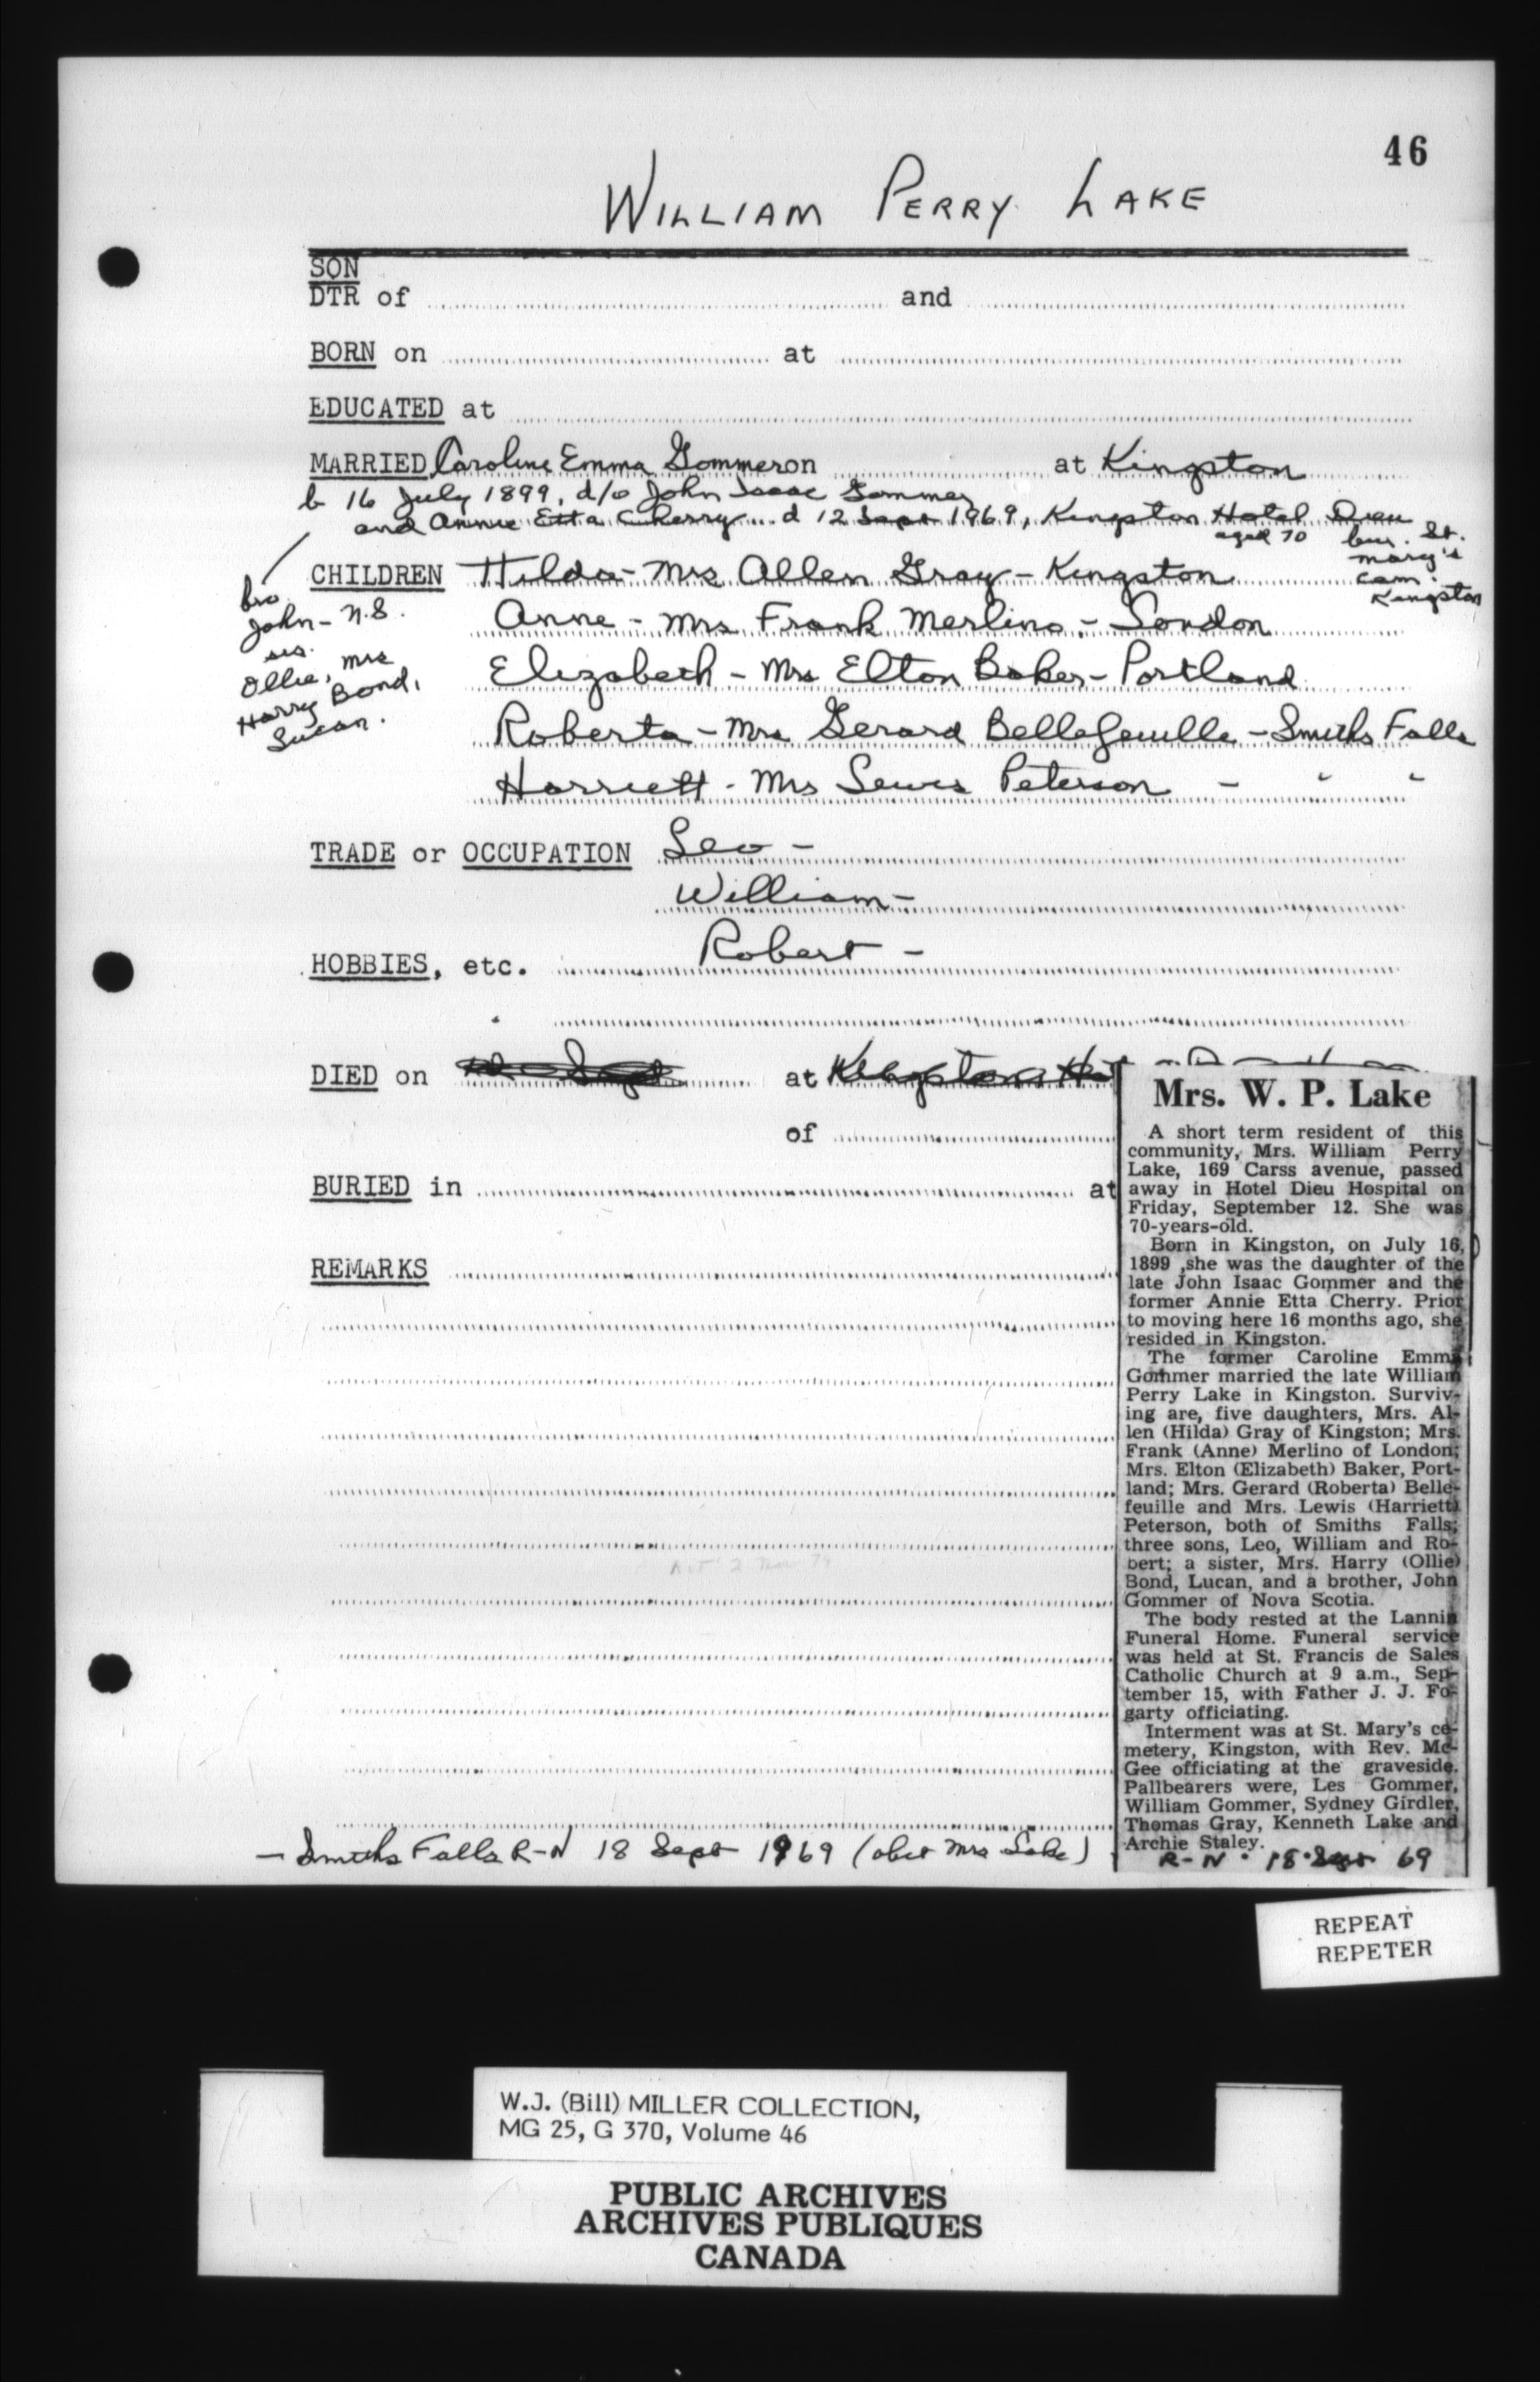 46
WILLIAM PERRY LAKE
SON
DTR of and
BORN on at
EDUCATED at
MARRIED Caroline Emma Gommer on at Kingston
b 16 July 1899, d/o John Isaac Gommer
and Annie Etta Cherry d 12 Sept 1969, Kingston Hotel Dieu
aged 70
bur. St.
Mary's
cem.
Kingston
bro
John - N.S.
sis.
Ollie, Mrs
Harry Bond,
Lucan.
CHILDREN Hilda - Mrs Allen Gray - Kingston
Anne - Mrs Frank Merlino - London
Elizabeth - Mrs Elton Baker - Portland
Roberta - Mrs Gerard Bellefeuille - Smiths Falls
Harriett - Mrs Lewis Peterson - " "
TRADE or OCCUPATION Leo -
William -
HOBBIES, etc. Robert -
DIED on at Kingston
of
BURIED in at
REMARKS
- Smiths Falls R-N 18 Sept 1969 (obit Mrs Lake)
Mrs. W. P. Lake
A short term resident of this
community, Mrs. William Perry
Lake, 169 Carss avenue, passed
away in Hotel Dieu Hospital on
Friday, September 12. She was
70-years-old.
Born in Kingston, on July 16,
1899 ,she was the daughter of the
late John Isaac Gommer and the
former Annie Etta Cherry. Prior
to moving here 16 months ago, she
resided in Kingston.
The former Caroline Emma
Gommer married the late William
Perry Lake in Kingston. Surviv-
ing are, five daughters, Mrs. Al-
len (Hilda) Gray of Kingston; Mrs.
Frank (Anne) Merlino of London;
Mrs. Elton (Elizabeth) Baker, Port-
land; Mrs. Gerard (Roberta) Belle-
feuille and Mrs. Lewis (Harriett)
Peterson, both of Smiths Falls;
three sons, Leo, William and Ro-
bert; a sister, Mrs. Harry (Ollie)
Bond, Lucan, and a brother, John
Gommer of Nova Scotia.
The body rested at the Lannin
Funeral Home. Funeral service
was held at St. Francis de Sales
Catholic Church at 9 a.m., Sep-
tember 15, with Father J. J. Fo-
garty officiating.
Interment was at St. Mary's ce-
metery, Kingston, with Rev. Mc-
Gee officiating at the graveside.
Pallbearers were, Les Gommer,
William Gommer, Sydney Girdler,
Thomas Gray, Kenneth Lake and
Archie Staley.
R-N. 18 Sept 69
REPEAT
REPETER
W.J. (Bill) MILLER COLLECTION,
MG 25, G 370, Volume 46
PUBLIC ARCHIVES
ARCHIVES PUBLIQUES
CANADA